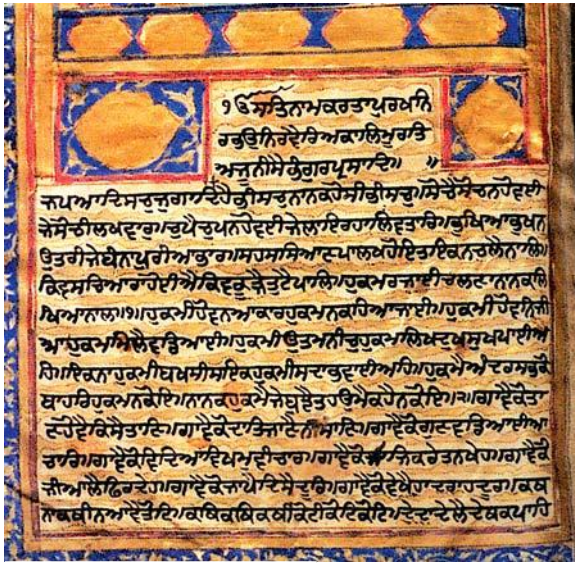 ੴ ਸਤਿਨਾਮਕਰਤਾਪੁਰਖੁਨਿ
ਰਭਉਨਿਰਵੈਰਿਅਕਾਲਿਮੂਰਤਿ
ਅਜੂਨੀਸੈਭੰਗੁਰਪ੍ਰਸਾਦਿ॥ ॥
ਜਪੁਆਦਿਸਚੁਜੁਗਾਦਿਹੈਭੀਸਚੁਨਾਨਕਹੋਸੀਭੀਸਚੁ॥ਸੋਚੈਸੋਚਨਹੋਵਈ
ਜੇਸੋਚੀਲਖਵਾਰ॥ਚੁਪੈਚੁਪਨਹੋਵਈਜੇਲਾਇਰਹਾਲਿਵਤਾਰ॥ਭੁਖਿਆਭੁਖਨ
ਉਤਰੀਜੇਬੰਨਾਪੁਰੀਆਭਾਰ॥ਸਹਸਸਿਆਣਪਾਲਖਹੋਹਿਤਇਕਨਚਲੈਨਾਲਿ॥
ਕਿਵਸਚਿਆਰਾਹੋਈਐਕਿਵਕੂੜੈਤੁਟੈਪਾਲਿ॥ਹੁਕਮਰਜਾਈਚਲਣਾਨਾਨਕਲਿ
ਖਿਆਨਾਲਿ॥੧॥ਹੁਕਮੀਹੋਵਨਆਕਾਰਹੁਕਮਨਕਹਿਆਜਾਈ॥ਹੁਕਮੀਹੋਵਨਿਜੀ
ਆਹੁਕਮਿਮਿਲੈਵਡਿਆਈ॥ਹੁਕਮੀਉਤਮਨੀਚੁਹੁਕਮਿਲਿਖਦੁਖਸੁਖਪਾਈਅ
ਹਿ॥ਇਕਨਾਹੁਕਮੀਬਖਸੀਸਇਕਿਹੁਕਮੀਸਦਾਭਵਾਈਅਹਿ॥ਹੁਕਮੈਅੰਦਰਸਭੁਕੋ
ਬਾਹਰਿਹੁਕਮਨਕੋਇ॥ਨਾਨਕਹੁਕਮੈਜੇਬੁਝੈਤਹਉਮੈਕਹੈਨਕੋਇ॥੨॥ਗਾਵੈਕੋਤਾ
ਣਹੋਵੈਕਿਸੈਤਾਣਿ॥ਗਾਵੈਕੋਦਾਤਿਜਾਣੈਨੀਸਾਣਿ॥ਗਾਵੈਕੋਗੁਣਵਡਿਆਈਆ
ਚਾਰ॥ਗਾਵੈਕੋਵਿਦਿਆਵਿਖਮੁਵੀਚਾਰ॥ਗਾਵੈਕੋਸਾਜਿਕਰੇਤਨਖੇਹ॥ਗਾਵੈਕੋ
ਜੀਆਲੈਫਿਰਦੇਹ॥ਗਾਵੈਕੋਜਾਪੈਦਿਸੈਦੂਰਿ॥ਗਾਵੈਕੋਵੇਖੈਹਾਦਰਾਹਦੂਰ॥ਕਥ
ਨਾਕਥੀਨਆਵੈਤੋਟਿ॥ਕਥਿਕਥਿਕਥੀਕੋਟੀਕੋਟਿਕੋਟਿ॥ਦੇਦਾਦੇਲੈਦੇਥਕਪਾਹਿ